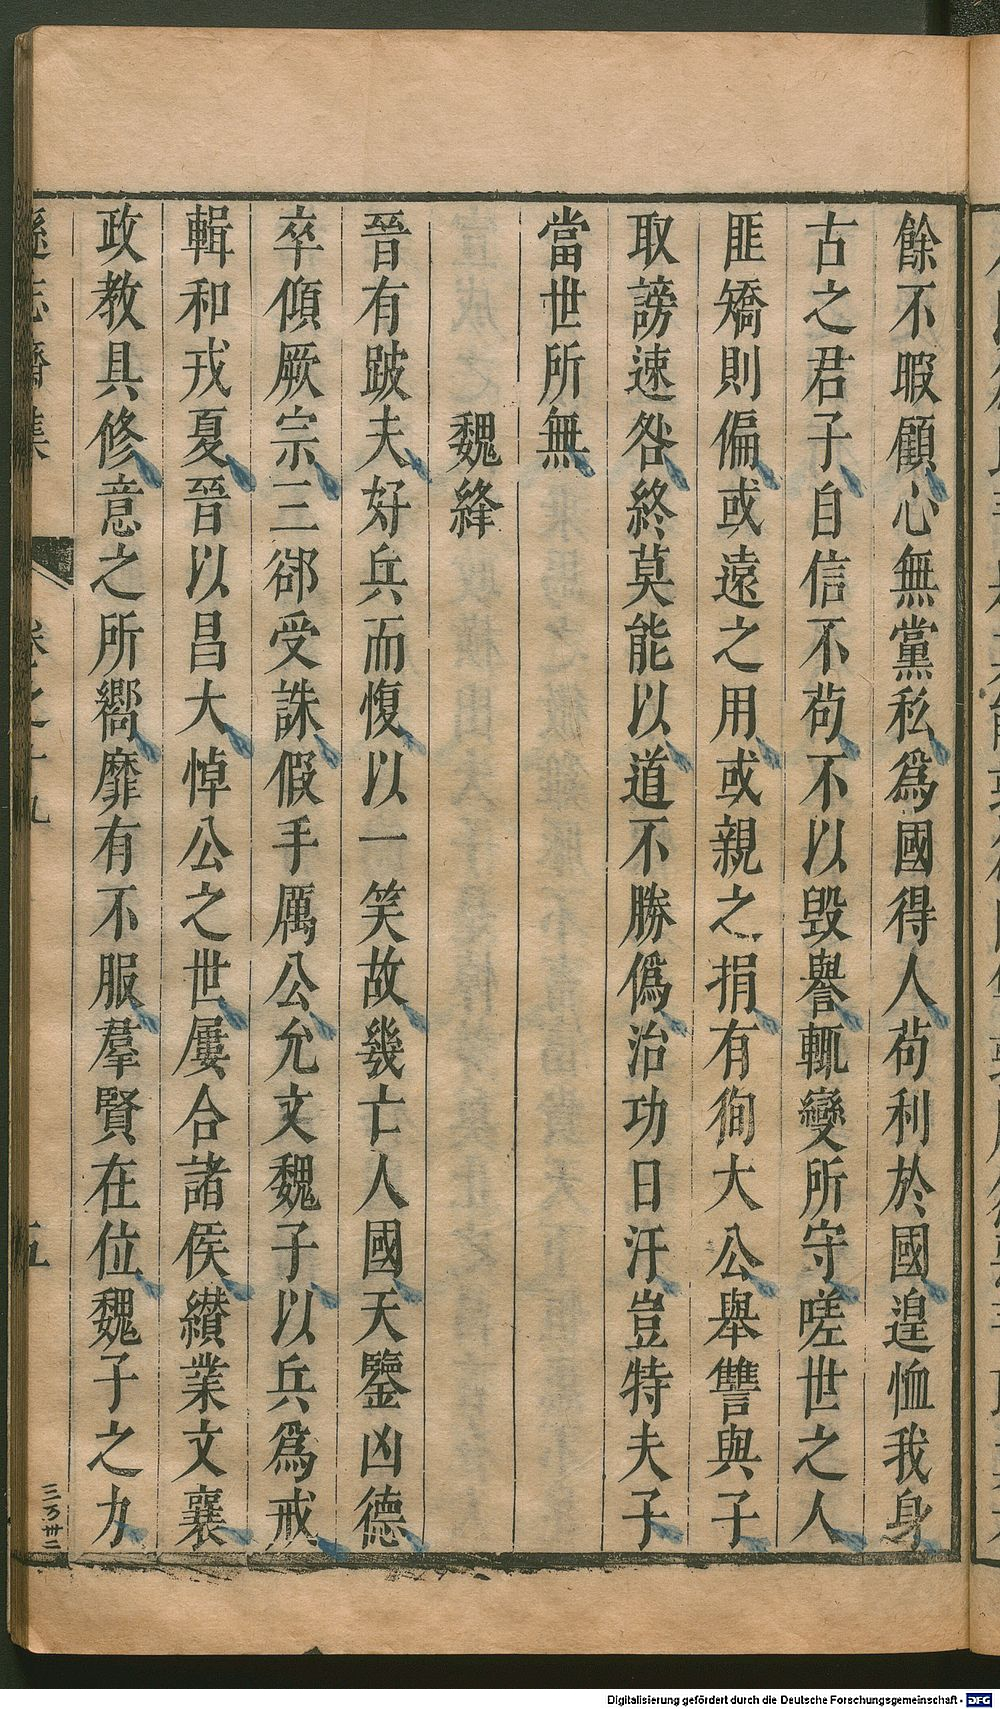 餘不暇顧心無黨私爲國得人苟利於國遑恤我身
古之君子自信不苟不以毀譽輒變所守嗟世之人
匪矯則偏或遠之用或親之捐有徇大公舉讐與子
取謗速咎終莫能以道不勝僞治功日汙豈特夫子
當世所無
魏絳
晉有跛夫好兵而愎以一笑故幾亡人國天鑒凶德
卒傾厥宗三郤受誅假手厲公允文魏子以兵爲戒
輯和戎夏晉以昌大悼公之世屢合諸侯纉業文襄
政教具修意之所嚮靡有不服羣賢在位魏子之力
遜志齋集
卷之十九
五
三万卅二
Digitalisierung gefördert durch die Deutsche Forschungsgemeinschaft - DFG